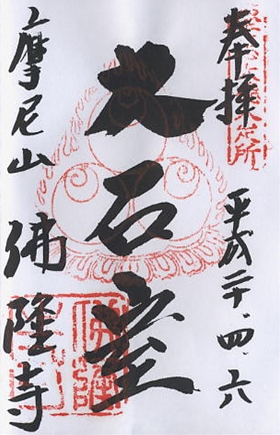 奉拝
平成二十.四.六
大石室
摩尼山 佛隆寺